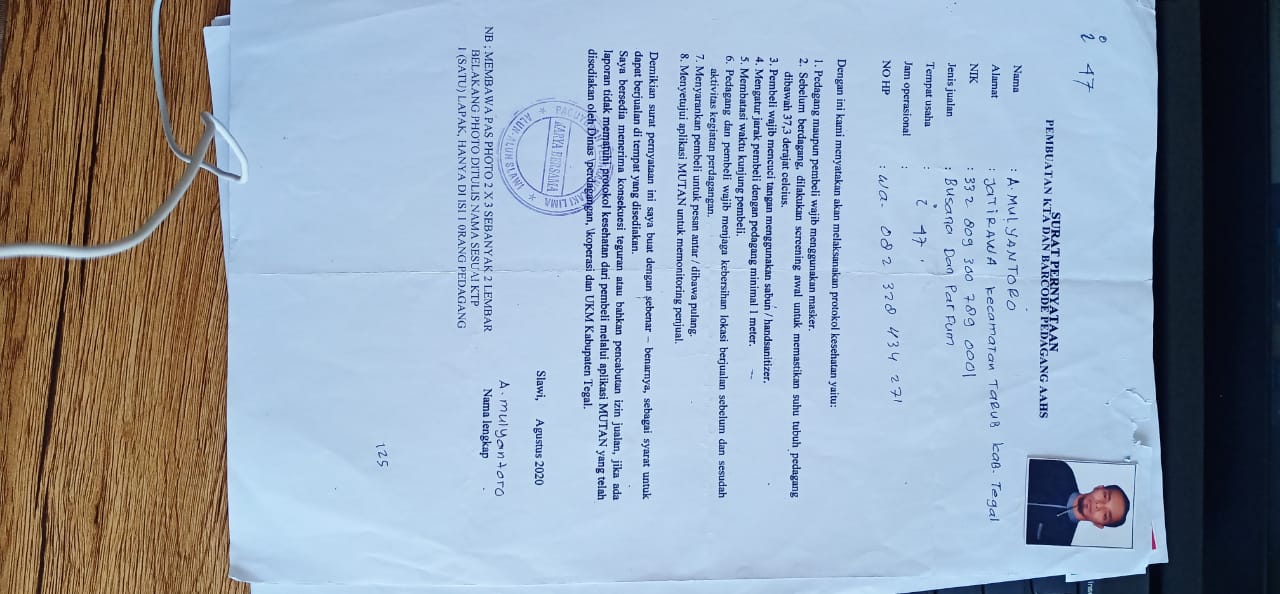 i 47
SURAT PERNYATAAN
PEMBUATAN KTA DAN BARCODE PEDAGANG AAHS
Nama : A. MULYANTORO
Alamat : JATIRAWA kecamatan TARUB kab. Tegal
NIK : 332 809 300 789 0001
Jenis jualan : Busana Dan Parfum
Tempat usaha : i 47.
Jam operasional :
NO HP : Wa. 082 328 434 271
Dengan ini kami menyatakan akan melaksanakan protokol kesehatan yaitu:
1. Pedagang maupun pembeli wajib menggunakan masker.
2. Sebelum berdagang, dilakukan screening awal untuk memastikan suhu tubuh pedagang
dibawah 37,3 derajat celcius.
3. Pembeli wajib mencuci tangan menggunakan sabun / handsanitizer.
4. Mengatur jarak pembeli dengan pedagang minimal 1 meter.
5. Membatasi waktu kunjung pembeli.
6. Pedagang dan pembeli wajib menjaga kebersihan lokasi berjualan sebelum dan sesudah
aktivitas kegiatan perdagangan.
7. Menyarankan pembeli untuk pesan antar / dibawa pulang.
8. Menyetujui aplikasi MUTAN untuk memonitoring penjual.
Demikian surat pernyataan ini saya buat dengan sebenar – benarnya, sebagai syarat untuk
dapat berjualan di tempat yang disediakan.
Saya bersedia menerima konsekuesi teguran atau bahkan pencabutan izin jualan, jika ada
laporan tidak mematuhi protokol kesehatan dari pembeli melalui aplikasi MUTAN yang telah
disediakan oleh Dinas perdagangan, koperasi dan UKM Kabupaten Tegal.
KARYA BERSAMA
ALUN-ALUN SLAWI
KAKI LIMA
Slawi, Agustus 2020
A. mulyantoro
Nama lengkap
NB ; MEMBAWA PAS PHOTO 2 X 3 SEBANYAK 2 LEMBAR
BELAKANG PHOTO DITULIS NAMA SESUAI KTP
1 (SATU) LAPAK, HANYA DI ISI 1 ORANG PEDAGANG
125